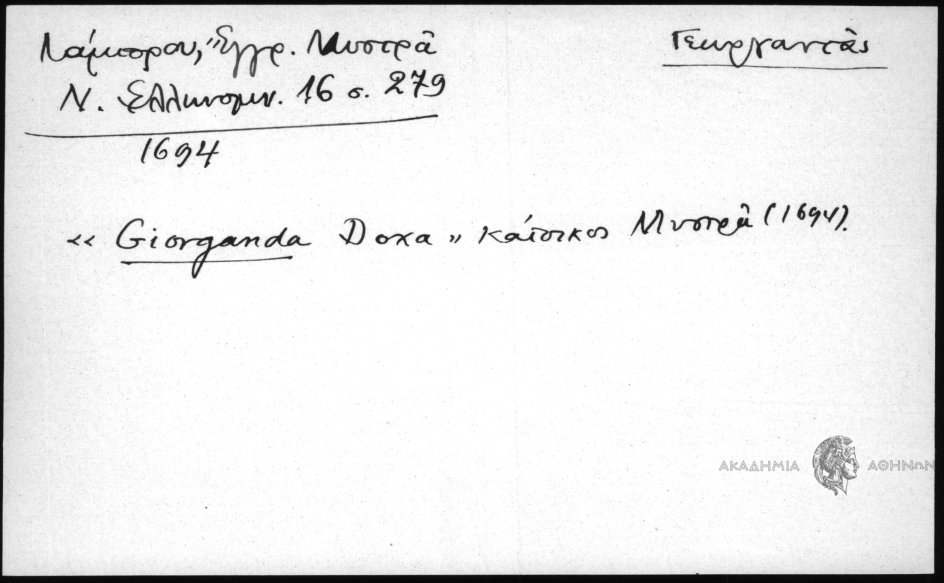 Λάμπρου, Ἔγγρ. Μυστρᾶ
Γεωργαντᾶς
Ν. Ἑλληνομν. 16 σ. 279
1694
« Giorganda Doxa » κάτοικος Μυστρᾶ (1694).
ΑΚΑΔΗΜΙΑ ΑΘΗΝΩΝ